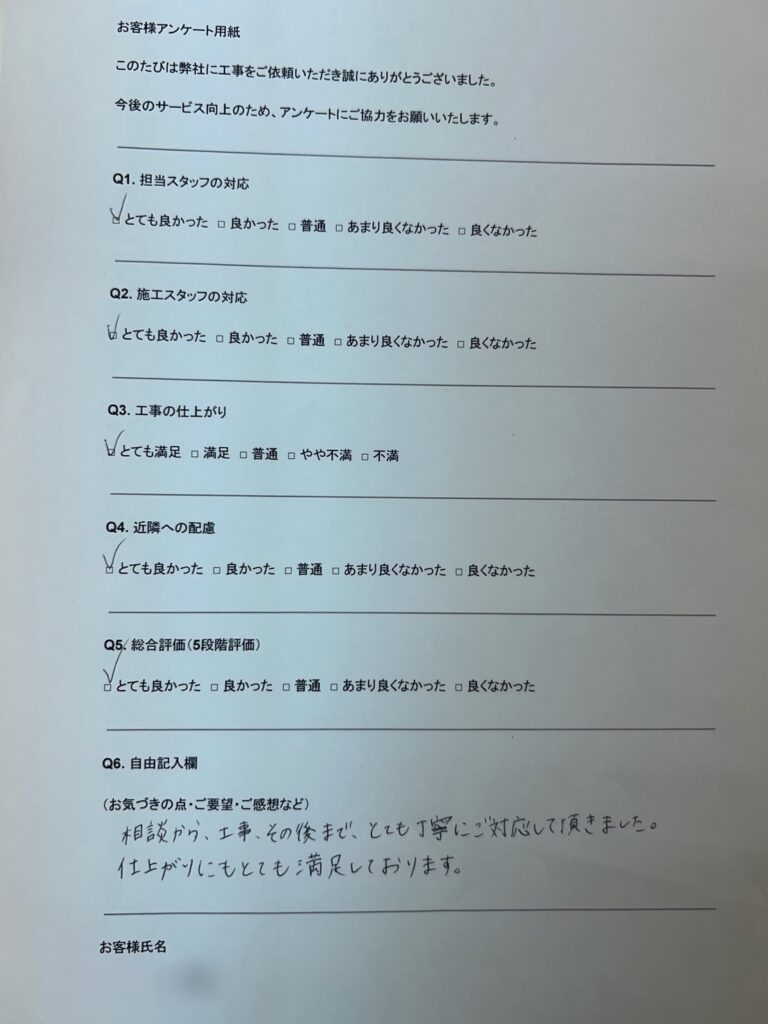 お客様アンケート用紙
このたびは弊社に工事をご依頼いただき誠にありがとうございました。
今後のサービス向上のため、アンケートにご協力をお願いいたします。
Q1. 担当スタッフの対応
☑ とても良かった □ 良かった □ 普通 □ あまり良くなかった □ 良くなかった
Q2. 施工スタッフの対応
☑ とても良かった □ 良かった □ 普通 □ あまり良くなかった □ 良くなかった
Q3. 工事の仕上がり
☑ とても満足 □ 満足 □ 普通 □ やや不満 □ 不満
Q4. 近隣への配慮
☑ とても良かった □ 良かった □ 普通 □ あまり良くなかった □ 良くなかった
Q5. 総合評価（5段階評価）
☑ とても良かった □ 良かった □ 普通 □ あまり良くなかった □ 良くなかった
Q6. 自由記入欄
（お気づきの点・ご要望・ご感想など）
相談から、工事、その後まで、とても丁寧にご対応して頂きました。
仕上がりにもとても満足しております。
お客様氏名